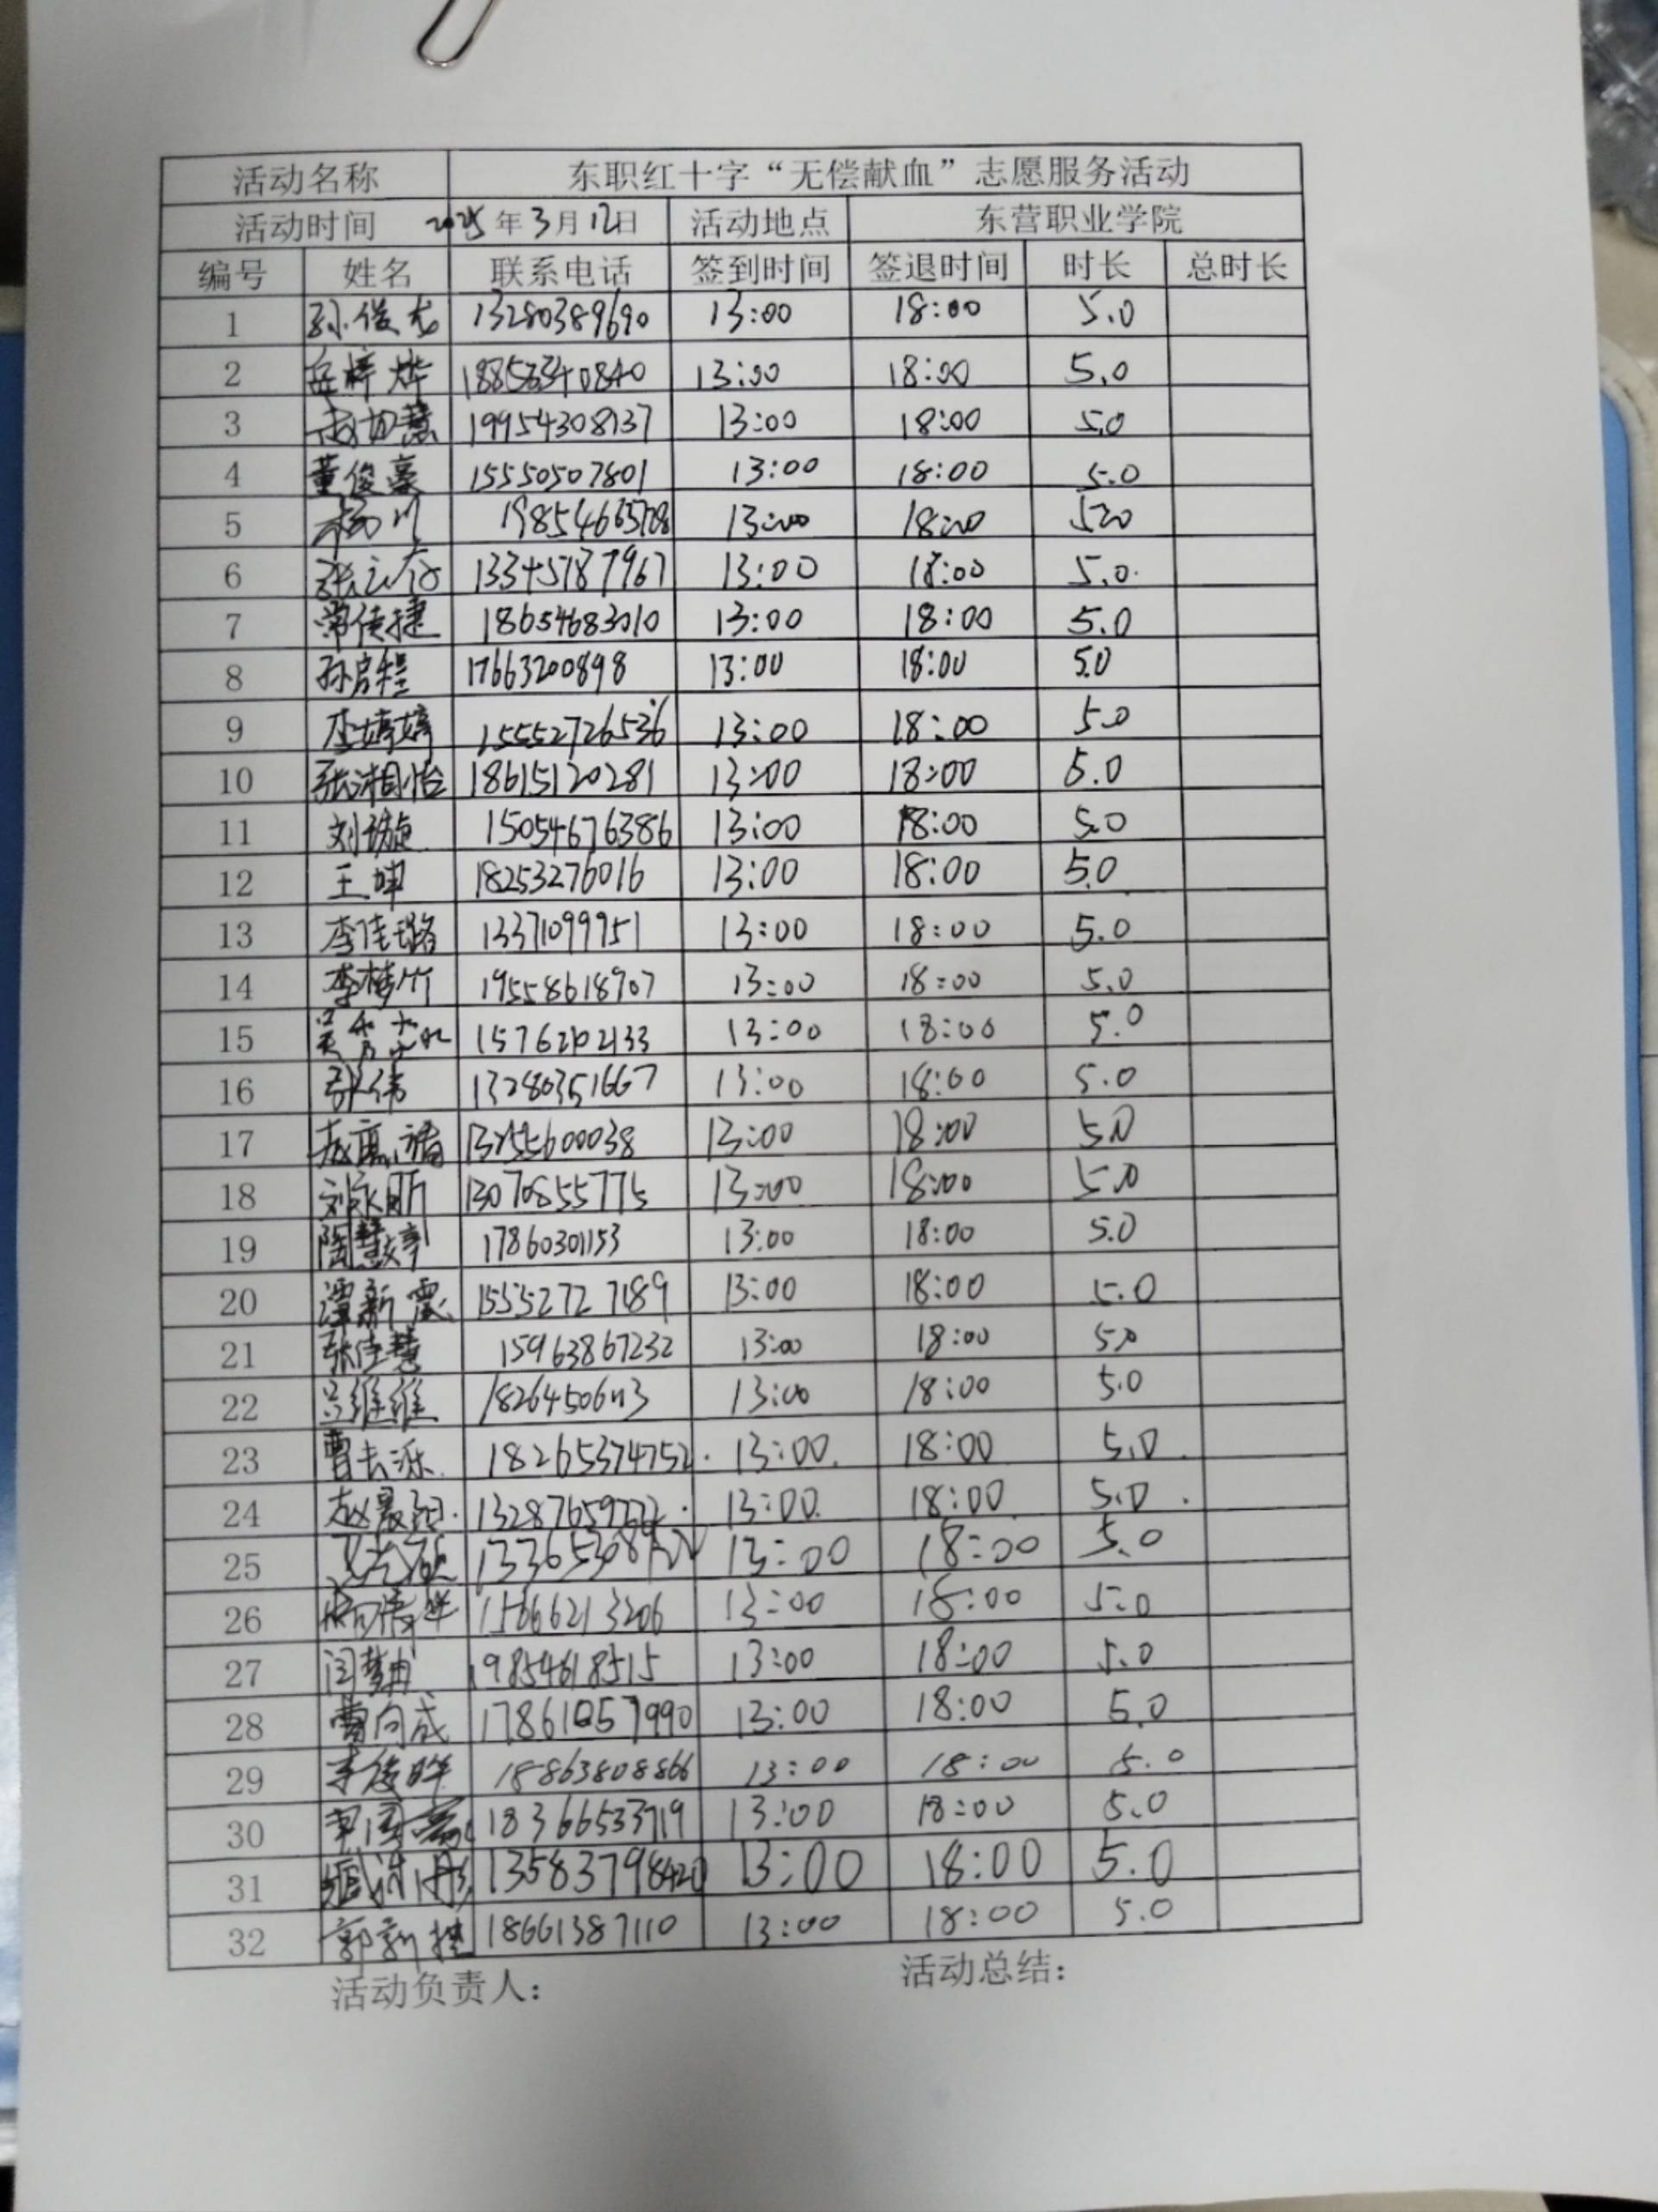 活动名称 东职红十字“无偿献血”志愿服务活动
活动时间 2025年3月12日 活动地点 东营职业学院
编号 姓名 联系电话 签到时间 签退时间 时长 总时长
1 孙俊龙 13280389690 13:00 18:00 5.0
2 岳梓烨 13:00 18:00 5.0
3 19954308737 13:00 18:00 5.0
4 董俊豪 15550507801 13:00 18:00 5.0
5 杨川 13:00 18:00
6 13345187967 13:00 18:00 5.0
7 常佳捷 18654683010 13:00 18:00 5.0
8 孙启程 17663200898 13:00 18:00 5.0
9 李婷婷 15552726536 13:00 18:00 5.0
10 张湘怡 18615120281 13:00 18:00 5.0
11 刘璇 15054676386 13:00 18:00 5.0
12 王坤 18253276016 13:00 18:00 5.0
13 李佳璐 13371099951 13:00 18:00 5.0
14 李梦竹 19558618907 13:00 18:00 5.0
15 13:00 18:00 5.0
16 张伟 13280351667 13:00 18:00 5.0
17 13:00 18:00 5.0
18 刘永昕 13070855775 13:00 18:00 5.0
19 陶慧婷 17860301153 13:00 18:00 5.0
20 谭新震 15552727189 13:00 18:00 5.0
21 张佳慧 15963867232 13:00 18:00 5.0
22 吕维维 13:00 18:00 5.0
23 18265374752. 13:00. 18:00 5.0.
24 13:00. 18:00 5.0.
25 13:00 18:00 5.0
26 15666213206 13:00 18:00 5.0
27 19854618515 13:00 18:00 5.0
28 曹向成 17861057990 13:00 18:00 5.0
29 李俊晔 18863808866 13:00 18:00 5.0
30 18366533719 13:00 18:00 5.0
31 13583798420 13:00 18:00 5.0
32 18661387110 13:00 18:00 5.0
活动负责人： 活动总结：